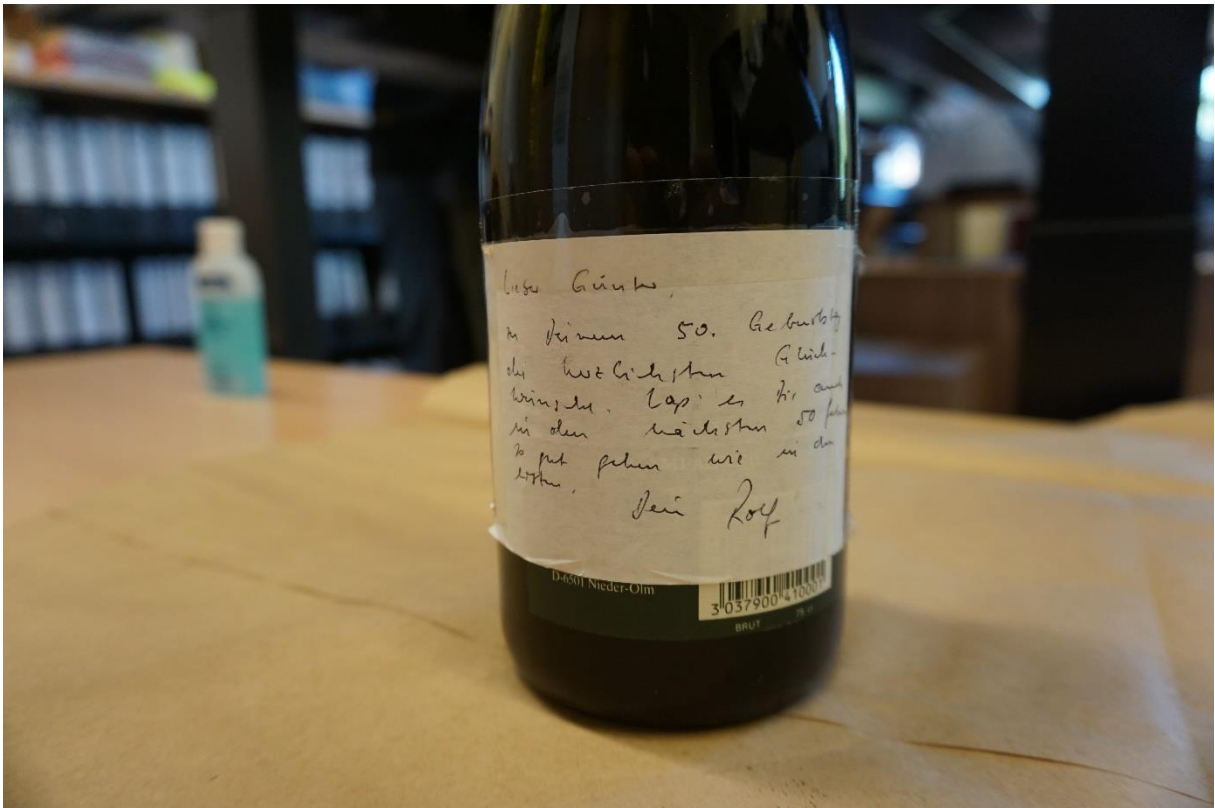 Lieber Günter,
zu Deinem 50. Geburtstag
die herzlichsten Glück-
wünsche. Laß es Dir auch
in den nächsten 50 Jahren
so gut gehen wie in den
ersten.
Dein Rolf
D-6501 Nieder-Olm
3 037900 410001
BRUT 75 cl